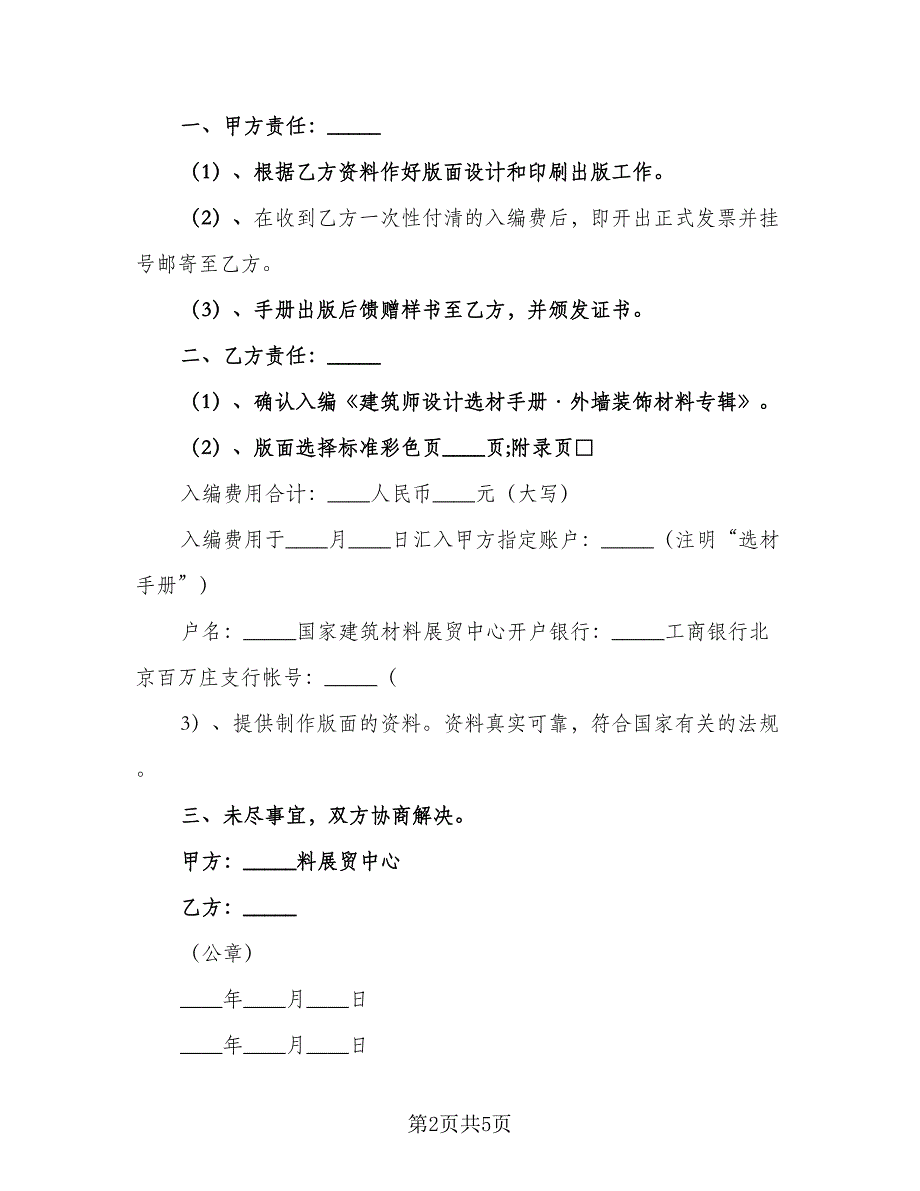 一、甲方责任：_____
（1）、根据乙方资料作好版面设计和印刷出版工作。
（2）、在收到乙方一次性付清的入编费后，即开出正式发票并挂
号邮寄至乙方。
（3）、手册出版后馈赠样书至乙方，并颁发证书。
二、乙方责任：_____
（1）、确认入编《建筑师设计选材手册·外墙装饰材料专辑》。
（2）、版面选择标准彩色页____页;附录页□
入编费用合计：____人民币____元（大写）
入编费用于____月____日汇入甲方指定账户：_____（注明“选材
手册”）
户名：_____国家建筑材料展贸中心开户银行：_____工商银行北
京百万庄支行帐号：_____（
3）、提供制作版面的资料。资料真实可靠，符合国家有关的法规
。
三、未尽事宜，双方协商解决。
甲方：_____料展贸中心
乙方：_____
（公章）
____年____月____日
____年____月____日
第2页共5页